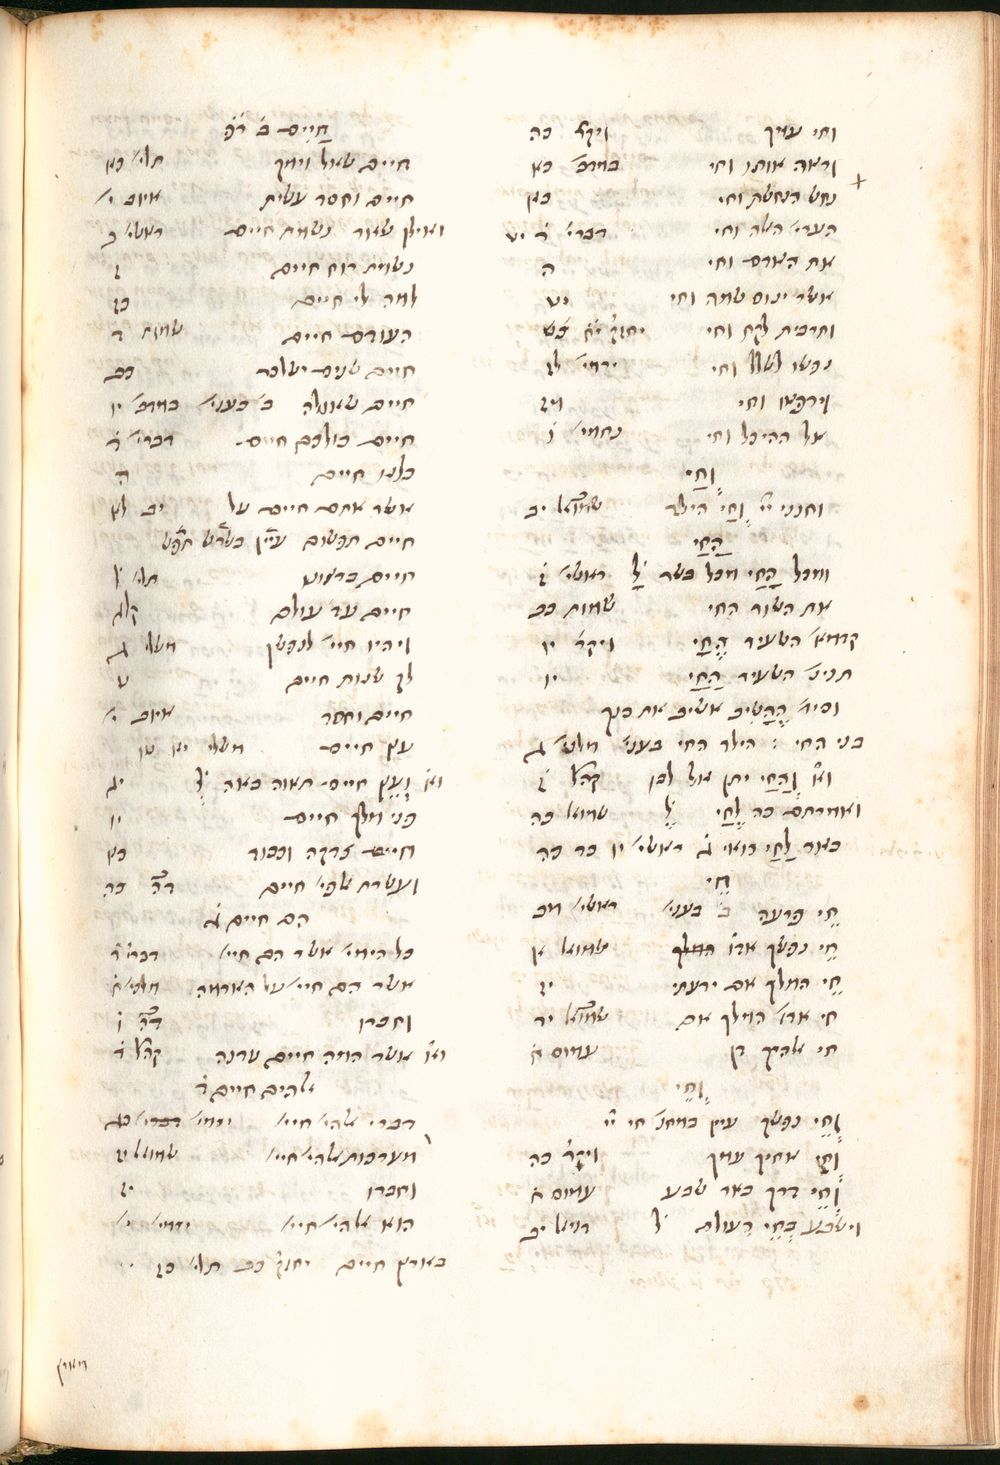 וחי עמך ויקר׳ כה
וראה אותו וחי במדב׳ כא
נחש הנחשת וחי כא
הערי׳ האלה וחי דברי׳ ד יט
את האדם וחי ה
אשר ינוס שמה וחי יט
ותרבית לקח וחי יחזק׳ יח
נפשו לשלל וחי ירמי׳ לח
וירפאו וחי
אל ההיכל וחי נחמי׳ ו
וָחַי
וחנני יי וָחַי הילד שמואל יב
הַחַי
ומכל הָחַי מכל בשר ל ראשי׳ ו
את השור החי שמות כב
קדמא׳ השעיר הֶחָי ויקר׳ יו
תנינ׳ השעיר הַחַי יו
בני החי : הילד החי בעני׳ מלכי׳ ג
וא׳ וְהַחַי יתן אל לבו קהל׳ ז
ואמרתם כה לֶחָי ל שמואל כה
באר לַחַי רואי ג ראשי׳ יו כד כה
חֵי
חֵי פרעה ב בעני׳ ראשי׳ מב
חֵי נפשך אדו׳ המלך שמואל א׳
חֵי המלך אם ידעתי יז
חי אדו׳ המלך אם שמואל יד
חי אלהיך דן עמוס ח
וְחֵי
וְחֵי נפשך
וְחֵי אחיך עמך ויקר׳ כה
וְחֵי דרך באר שבע עמוס ח
וישבע בְּחֵי העולם ל דניאל יב
חַיִים
חיים שאל ממך תלי׳ כא
חיים וחסד עשית איוב י׳
נשמת חיים ראשי׳ ב
נשמת רוח חיים ז
למה לי חיים כז
העודם חיים שמות ד
חיים שנים ישלם כב
חיים שאולה ב׳ בעני׳ במדב׳ יו
חיים כולכם היום דברי׳ ד
כלנו חיים ה
אשר אתם חיים על יב לא
חיים תפשום
חיים ברצונו תלי׳ ל
חיים עד עולם קלג
ויהיו חיי׳ לנפשך משלי ג
לך שנות חיים ט
חיים וחסד איוב י׳
עץ חיים משלי יא טו
וא׳ וְעֵץ חיים תאוה באה ל יג
פני מלך חיים יו
חיים צדקה וכבוד כא
ועטרת אלפי׳ חיים כה
הם חיים ג
כל הימי׳ אשר הם חיי׳ דברי׳ ד
אשר הם חיי׳ על האדמה מלכי׳ ח
וחברו דה ו
וא׳ אשר המה חיים עדנה קהל׳ ד
אלהים חיים ד
דברי אלהי׳ חיי׳ ירמי׳ דברי׳ כג
מערכות אלהי׳ חיי׳ שמואל יז
וחברו יז
הוא אלהי׳ חיי׳ ירמי׳ י׳
בארץ חיים יחזק׳ כב תלי׳ כז
מארץ